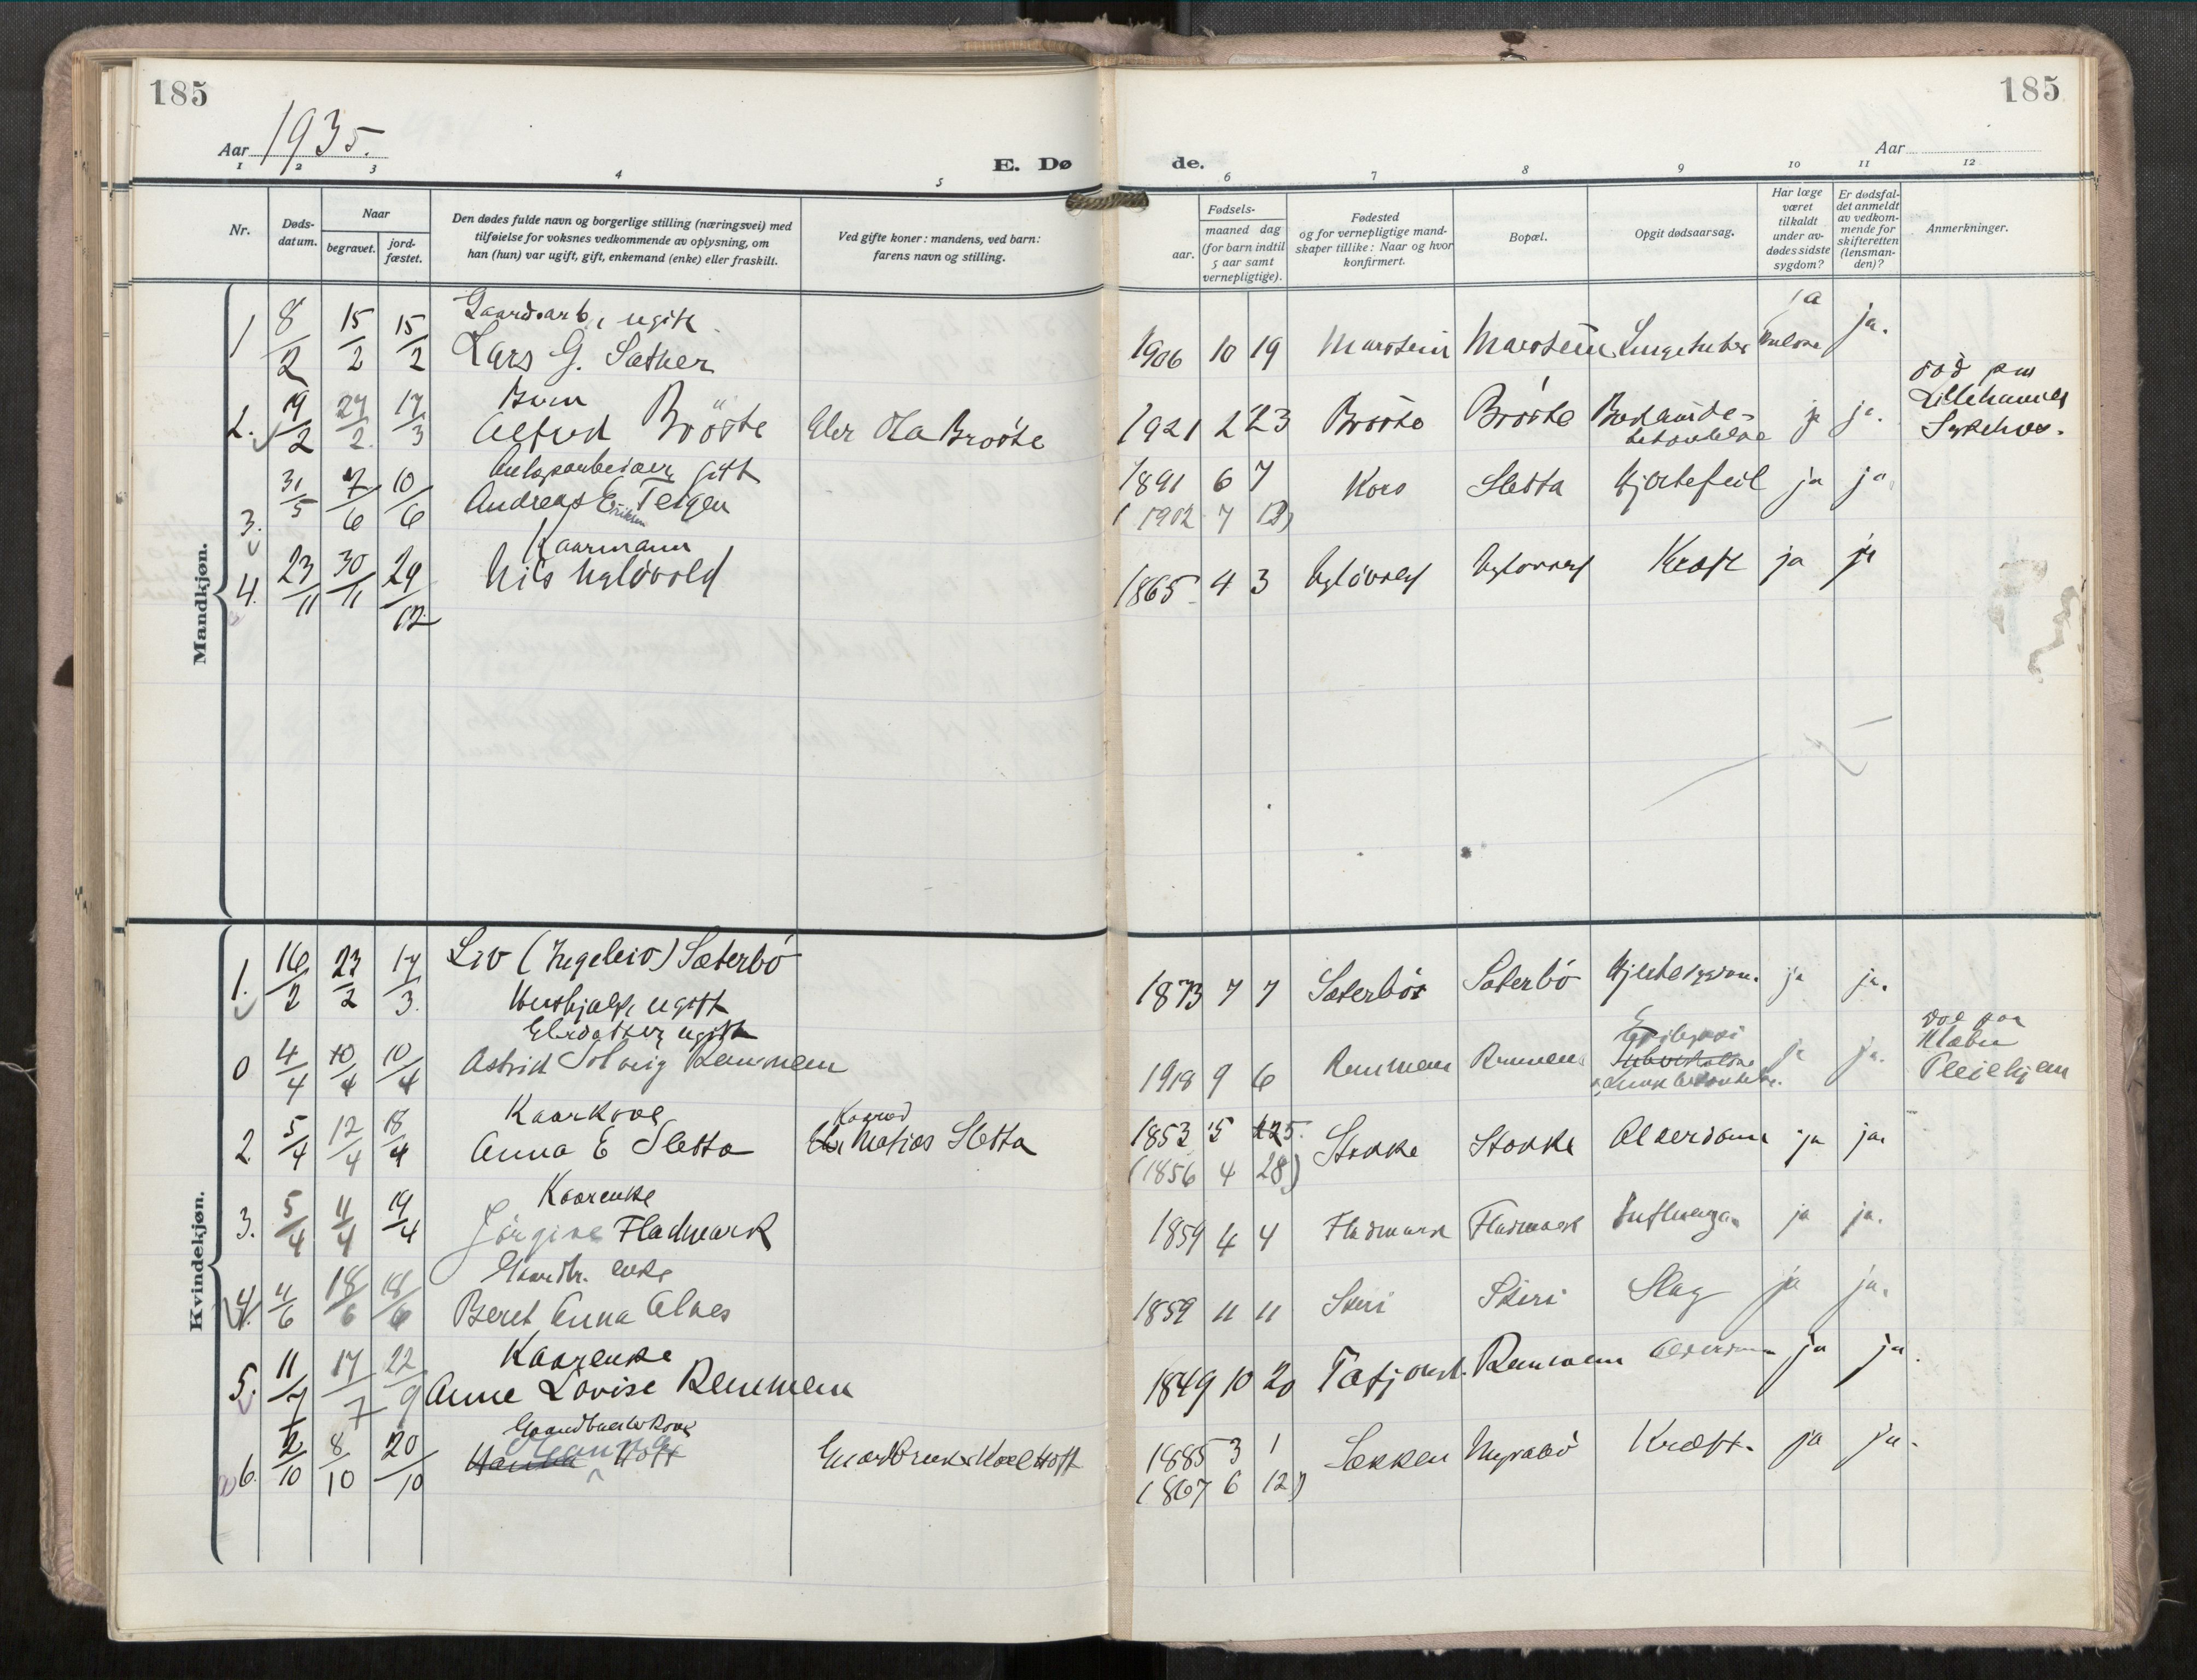 185
185
Aar 1935.
E. Dø
de.
Aar
1 2 3 4 5 6 7 8 9 10 11 12
Nr.
Døds-
datum.
Naar
begravet.
jord-
fæstet.
Den dødes fulde navn og borgerlige stilling (næringsvei) med
tilføielse for voksnes vedkommende av oplysning, om
han (hun) var ugift, gift, enkemand (enke) eller fraskilt.
Ved gifte koner: mandens, ved barn:
farens navn og stilling.
Fødsels-
aar.
maaned dag
(for barn indtil
5 aar samt
vernepligtige).
Fødested
og for vernepligtige mand-
skaper tillike: Naar og hvor
konfirmert.
Bopæl.
Opgit dødsaarsag.
Har læge
været
tilkaldt
under av-
dødes sidste
sygdom?
Er dødsfal-
det anmeldt
av vedkom-
mende for
skifteretten
(lensman-
den)?
Anmerkninger.
Mandkjøn.
Gaardsarb, ugift ja
1 8/2 15/2 15/2 Lars G. Sæther 1906 10 19 Marstein Marstein ja.
Barn død paa
2. 19/2 27/2 17/3 Alfred Brøste Ola Brøste 1921 2 23 Brøste Brøste ja ja. Lillehammer
Sykehus.
Anlegsarbeider gift
3. 31/5 7/6 10/6 Andreas E Teigen 1891 6 7 Kors Sletta Hjertefeil ja ja
Eriksen (1902 7 13)
Kaarmann
4. 23/11 30/11 29/12 Nils 1865 4 3 Kræft ja ja
Kvindekjøn.
1. 16/2 23/2 17/3 Liv (Ingeleiv) Sæterbø 1873 7 7 Sæterbø Sæterbø Hjertesygdom. ja ja.
Hushjælp, ugift
ugift Epilepsi død paa
0 4/4 10/4 10/4 Astrid Solveig Remmem 1918 9 6 Remmem Remmem ja ja. Klæbu
Pleiehjem
Kaarkone Kaarmd
2 5/4 12/4 18/4 Anna E Sletta Matias Sletta 1853 5 25. Stokke Stokke Alderdom ja ja
(1856 4 28)
Kaarenke
3. 5/4 11/4 19/4 Jørgine Fladmark 1859 4 4 Fladmark Fladmark Influenza ja ja.
Gaardbr. enke
4. 11/6 18/6 18/6 Beret Anna Alnes 1859 11 11 Skiri Skiri Slag ja ja.
Kaarenke
5. 11/7 17/7 22/9 Anne Lovise Remmem 1849 10 20 Tafjord. Remmem Alderdom ja ja.
Gaardbrukerkone
6. 2/10 8/10 20/10 Hoff Hoff 1885 3 1 Sekken Myrabø Kræft. ja ja.
(1867 6 12)